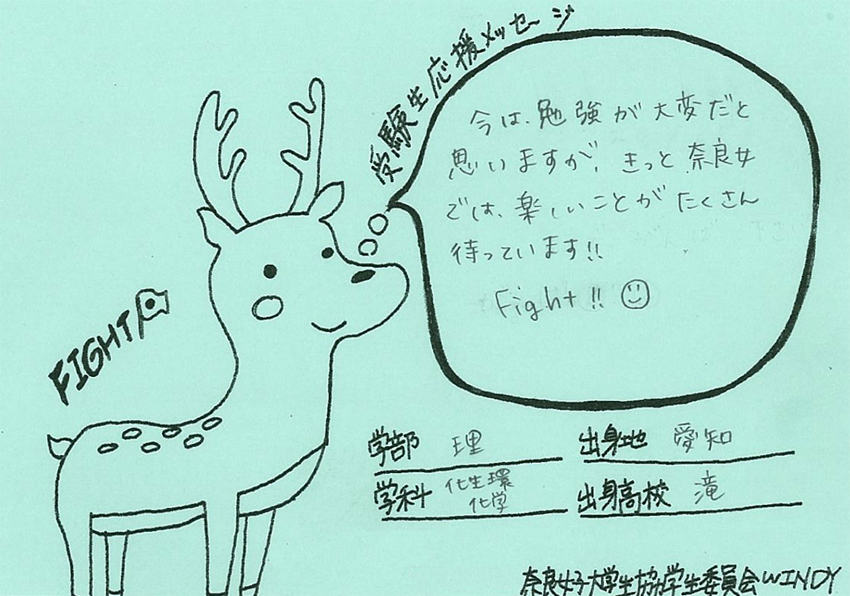 受験生応援メッセージ
今は、勉強が大変だと
思いますが、きっと奈良女
では、楽しいことがたくさん
待っています!!
Fight!!
FIGHT
学部 理
学科 化生環
化学
出身地 愛知
出身高校 滝
奈良女子大学生協学生委員会WINDY